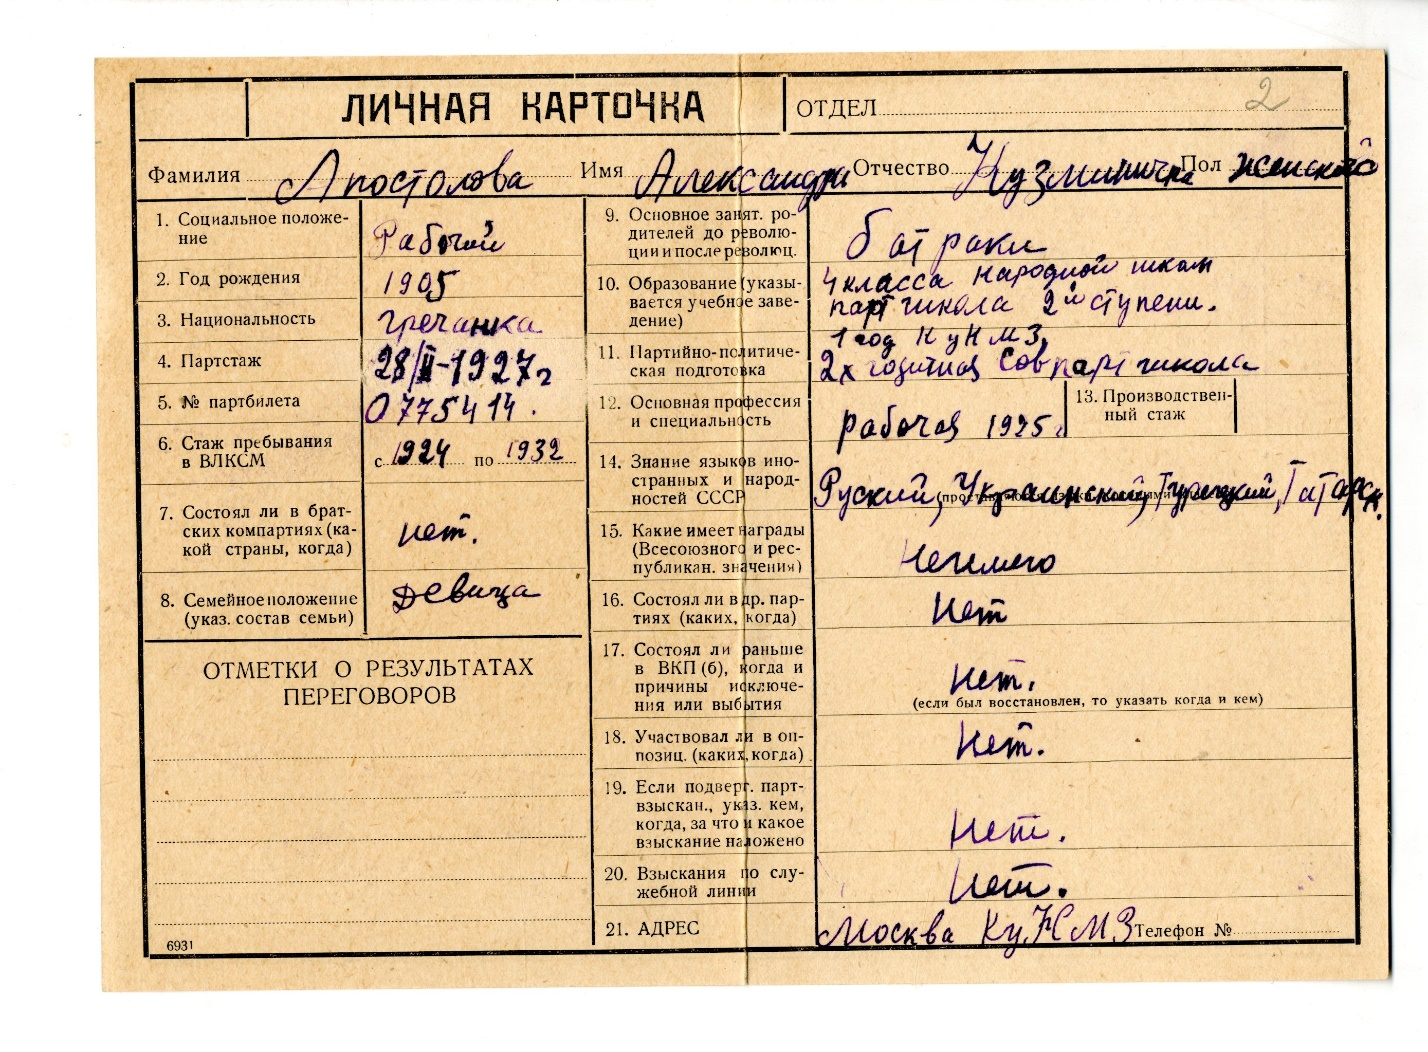 ЛИЧНАЯ КАРТОЧКА
ОТДЕЛ
2
Фамилия Апостолова Имя Александра Отчество Кузминична Пол женский
1. Социальное положе-
ние
Рабочий
2. Год рождения 1905
3. Национальность гречанка
4. Партстаж 28/II-1927г
5. № партбилета 0775414.
6. Стаж пребывания
в ВЛКСМ
с 1924 по 1932
7. Состоял ли в брат-
ских компартиях (ка-
кой страны, когда)
нет.
8. Семейное положение
(указ. состав семьи)
Девица
ОТМЕТКИ О РЕЗУЛЬТАТАХ
ПЕРЕГОВОРОВ
6931
9. Основное занят. ро-
дителей до револю-
ции и после революц.
батраки
10. Образование (указы-
вается учебное заве-
дение)
4 класса народной школы
партшкола 2й ступени.
1 год КуНМЗ,
11. Партийно-политиче-
ская подготовка
2х годичная совпартшкола
12. Основная профессия
и специальность
рабочая 1925г.
13. Производствен-
ный стаж
14. Знание языков ино-
странных и народ-
ностей СССР
Руский, Украинский, Турецкий, Татарск.
15. Какие имеет награды
(Всесоюзного и рес-
публикан. значения)
16. Состоял ли в др. пар-
тиях (каких, когда)
Нет
17. Состоял ли раньше
в ВКП (б), когда и
причины исключе-
ния или выбытия
Нет.
(если был восстановлен, то указать когда и кем)
18. Участвовал ли в оп-
позиц. (каких, когда)
Нет.
19. Если подверг. парт-
взыскан., указ. кем,
когда, за что и какое
взыскание наложено
Нет.
20. Взыскания по слу-
жебной линии
Нет.
21. АДРЕС
Москва КуНМЗ Телефон №